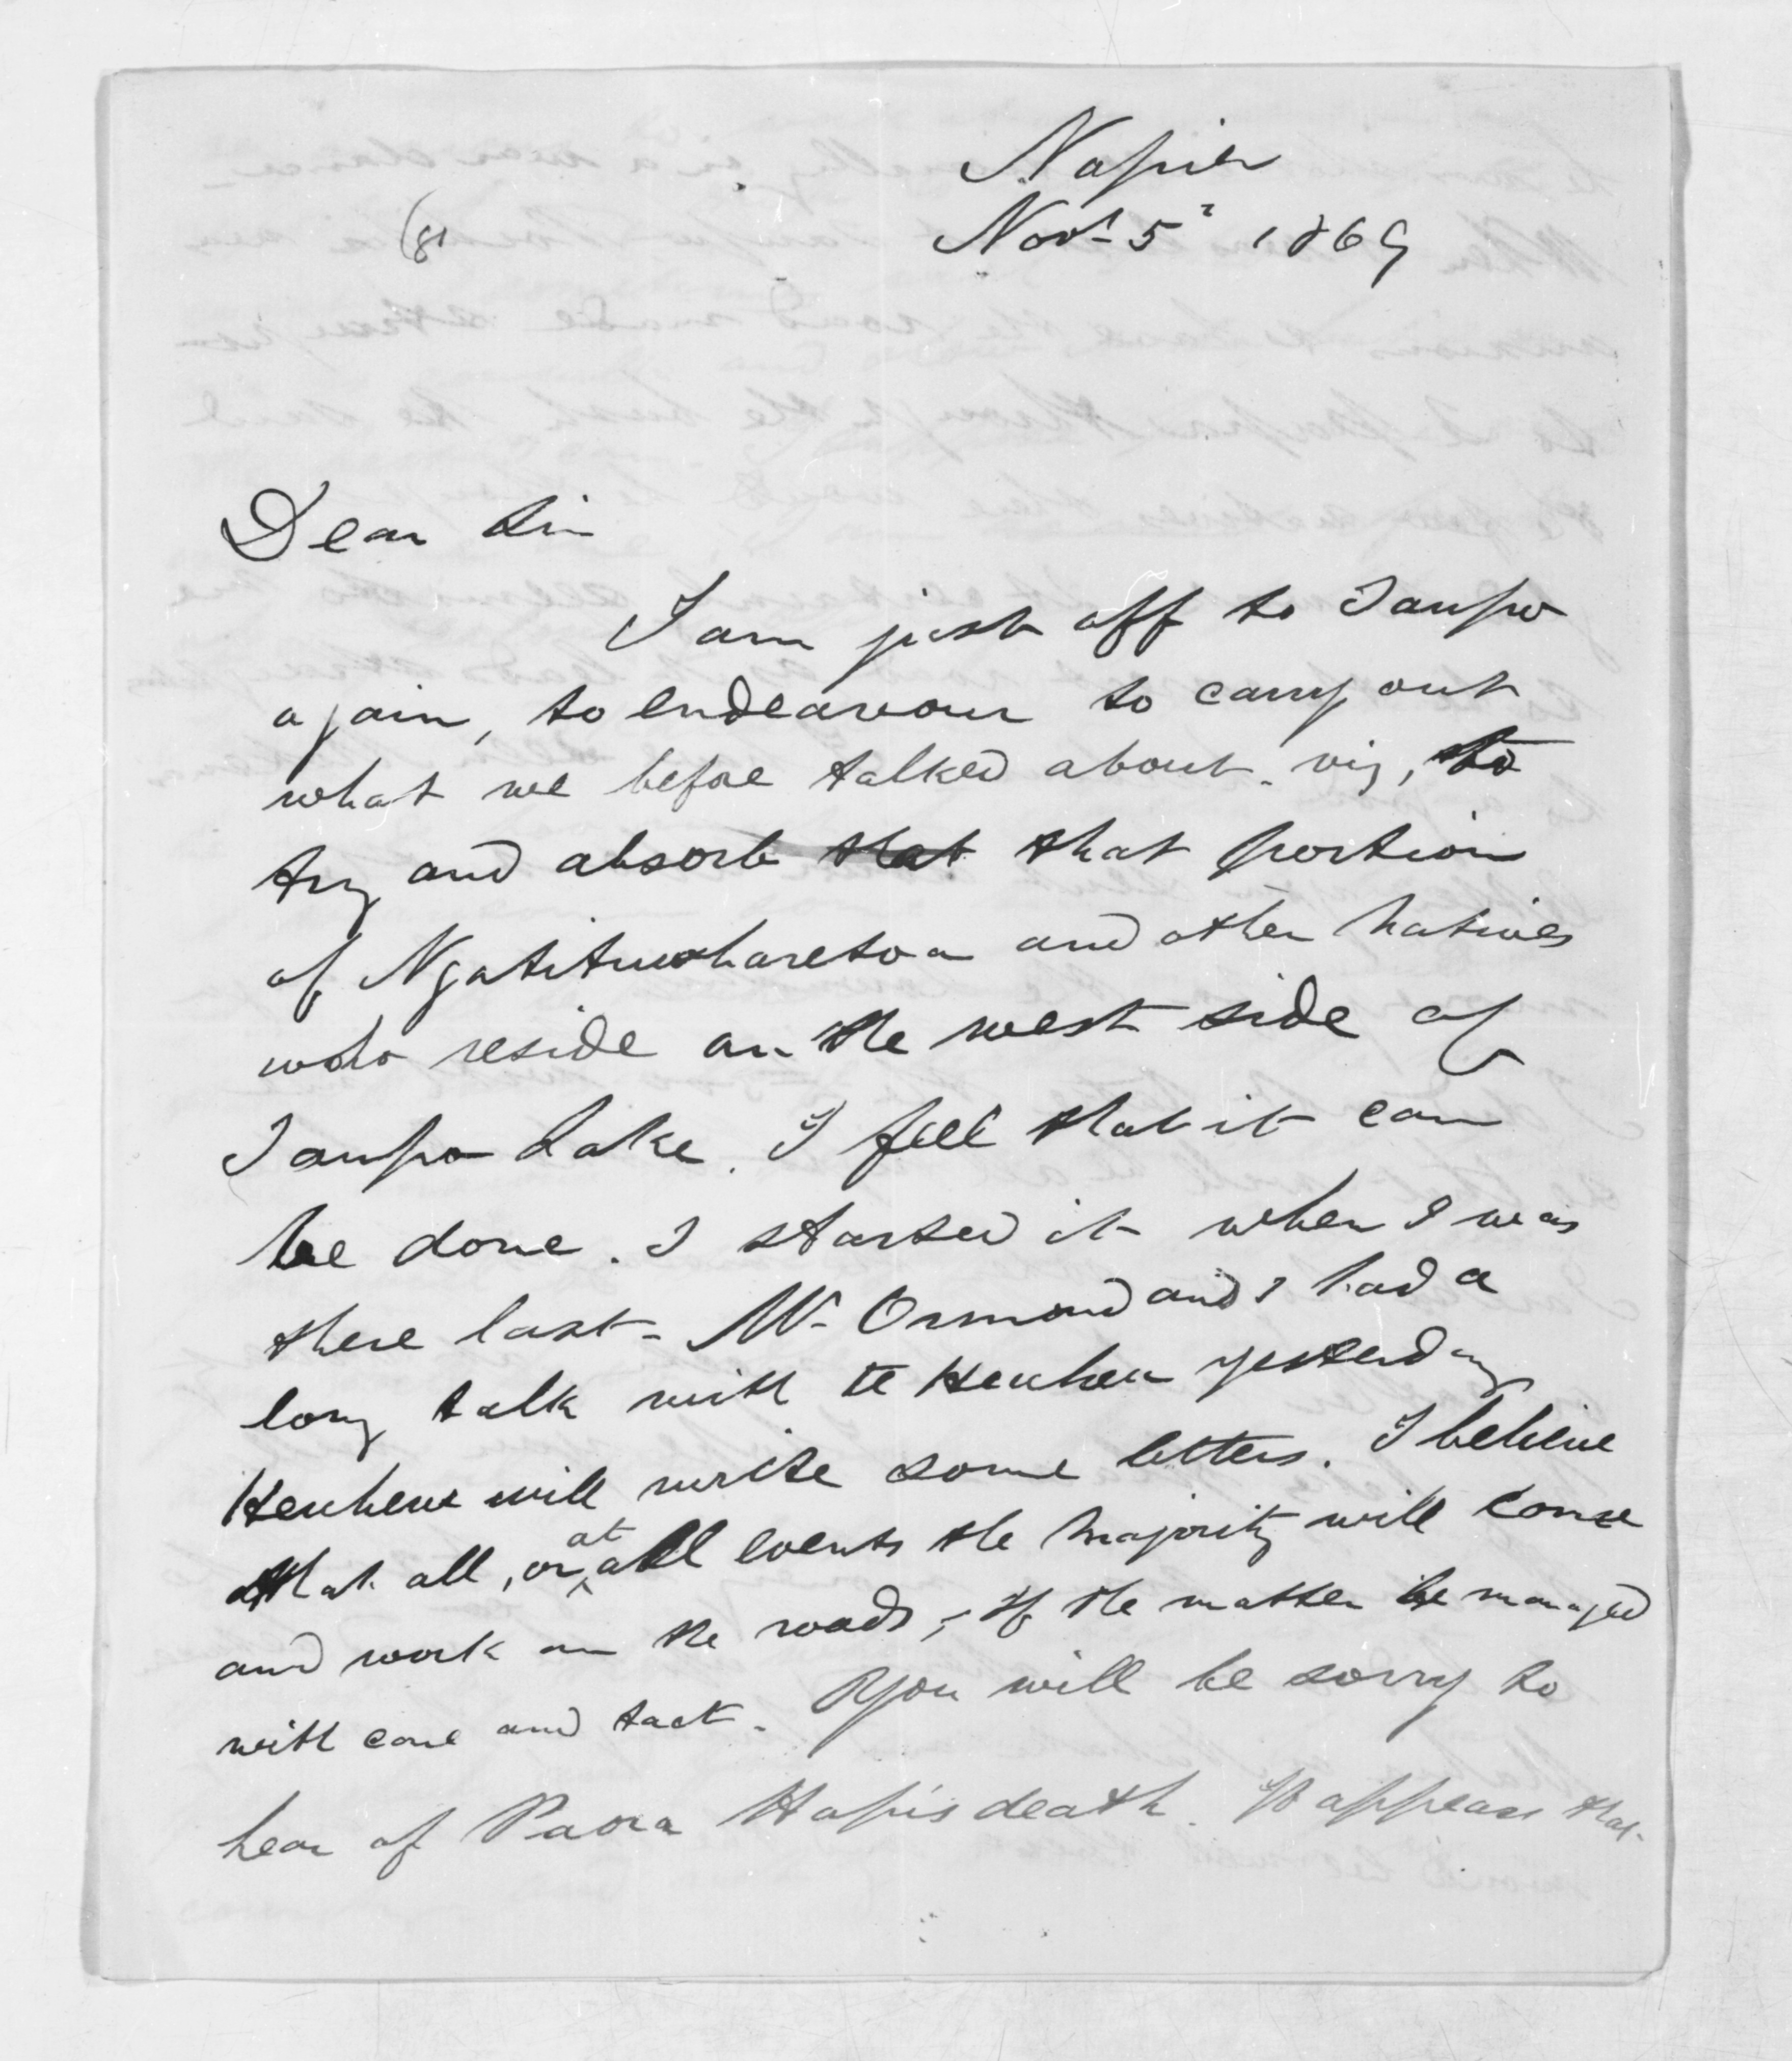 Napier
(81
Novr 5th 1869
Dear Sir
I am just off to Taupo
again, to endeavour to carry out
what we before talked about. viz, to
try and absorb that that portion
of Ngatituwharetoa and other natives
who reside on the west side of
Taupo Lake. I feel that it can
be done. I started it when I was
there last. Mr Ormond and I had a
long talk with te Heuheu yesterday
Heuheu will write some letters. I believe
that all, or at all events the majority will come
and work on the roads, if the matter be managed
with care and tact. You will be sorry to
hear of Paora Hapi's death. It appears that